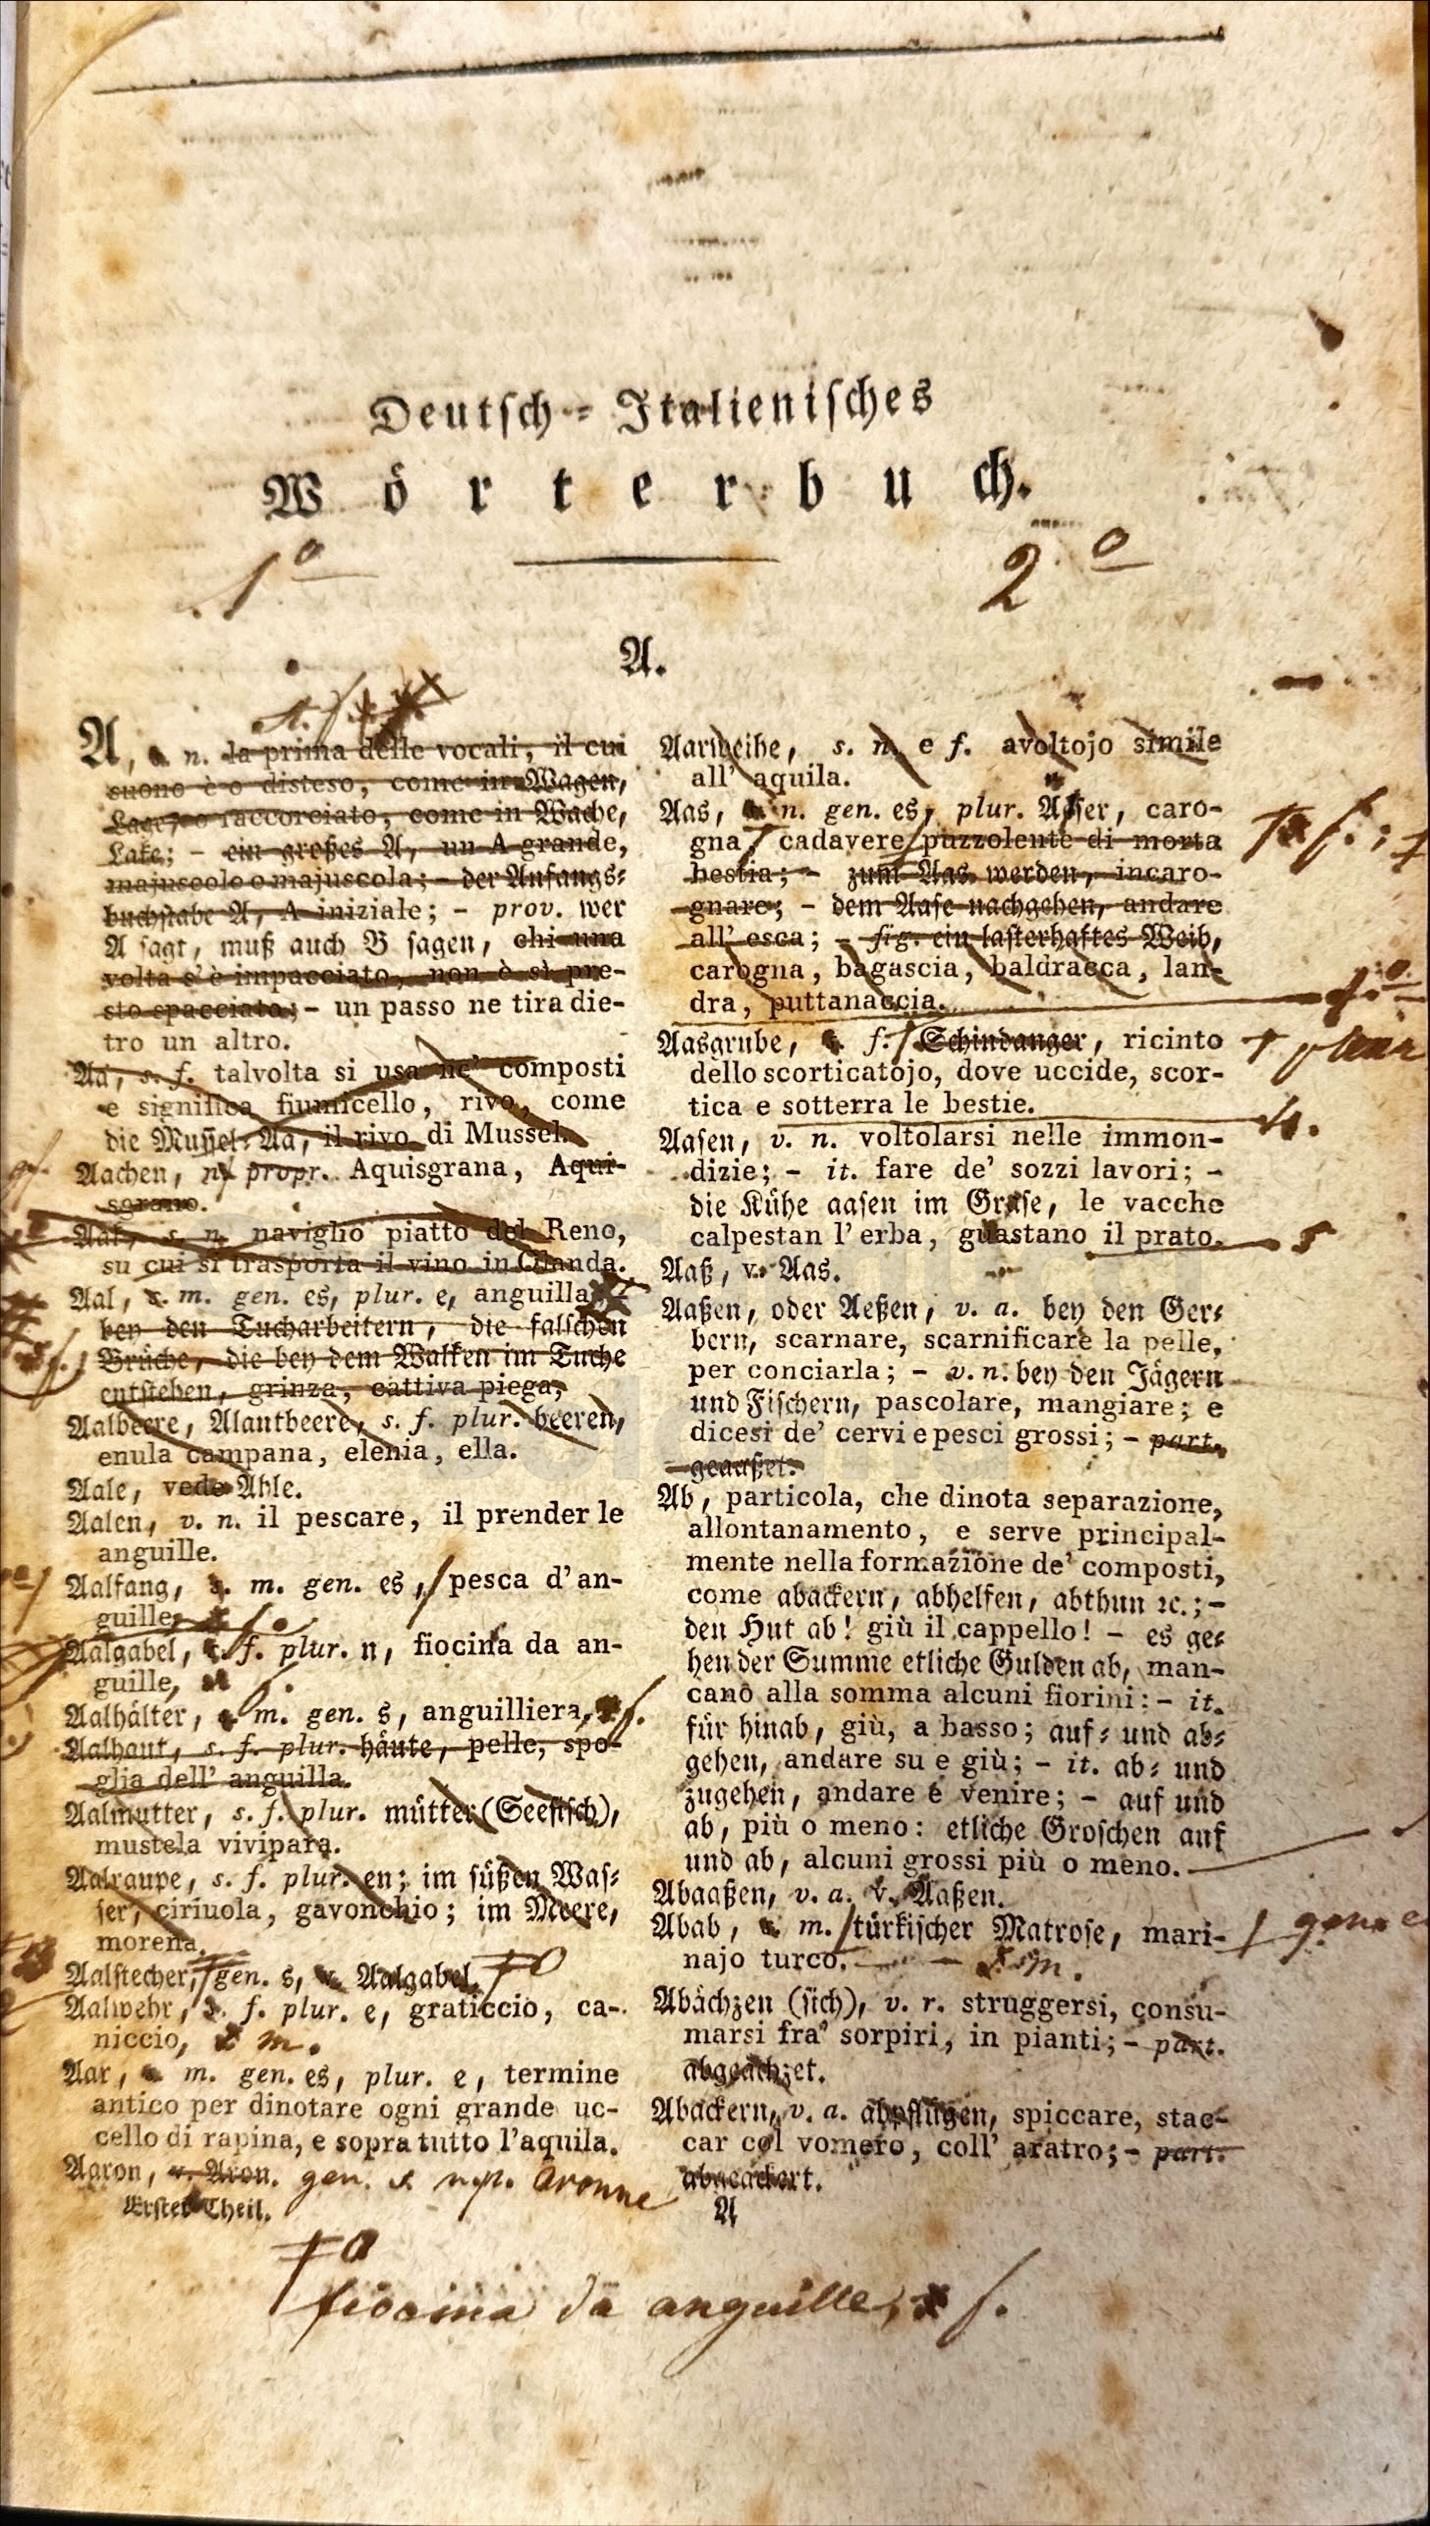 Deutsch-Italienisches
Wörterbuch.
1º
2º
A.
A, s. n. la prima delle vocali, il cui
suono è o disteso, come in Wagen,
Lage, o raccorciato, come in Wache,
Lake; – ein großes A, un A grande,
majuscolo o majuscola; – der Anfangs-
buchstabe A, A iniziale; – prov. wer
A sagt, muß auch B sagen, chi una
volta s'è impacciato, non è sì pre-
sto spacciato; – un passo ne tira die-
tro un altro.
Aa, s. f. talvolta si usa ne' composti
e significa fiumicello, rivo, come
die Mussel-Aa, il rivo di Mussel.
Aachen, n. propr. Aquisgrana, Aqui-
sgrano.
Aak, s. n. naviglio piatto del Reno,
su cui si trasporta il vino in Olanda.
Aal, s. m. gen. es, plur. e, anguilla
bey den Tucharbeitern, die falschen
Brüche, die bey dem Walken im Tuche
entstehen, grinza, cattiva piega,
Aalbeere, Alantbeere, s. f. plur. beeren,
enula campana, elenia, ella.
Aale, vede Ahle.
Aalen, v. n. il pescare, il prender le
anguille.
Aalfang, s. m. gen. es, pesca d'an-
guille,
Aalgabel, s. f. plur. n, fiocina da an-
guille, f.
Aalhälter, s. m. gen. s, anguilliera, f.
Aalhaut, s. f. plur. häute, pelle, spo-
glia dell' anguilla.
Aalmutter, s. f. plur. mütter (Seefisch),
mustela vivipara.
Aalraupe, s. f. plur. en; im süßen Was-
ser, ciriuola, gavonchio; im Meere,
morena.
Aalstecher, gen. s, v. Aalgabel.
Aalwehr, s. f. plur. e, graticcio, ca-
niccio, m.
Aar, s. m. gen. es, plur. e, termine
antico per dinotare ogni grande uc-
cello di rapina, e sopra tutto l'aquila.
Aaron, v. Aron. gen. s n.p. Aronne
Erster Theil.
Aarweihe, s. n. e f. avoltojo simile
all' aquila.
Aas, s. n. gen. es, plur. Aeser, caro-
gna, cadavere puzzolente di morta
bestia; – zum Aas werden, incaro-
gnare; – dem Aase nachgehen, andare
all' esca; – fig. ein lasterhaftes Weib,
carogna, bagascia, baldracca, lan-
dra, puttanaccia.
Aasgrube, s. f. Schindanger, ricinto
dello scorticatojo, dove uccide, scor-
tica e sotterra le bestie.
4.
Aasen, v. n. voltolarsi nelle immon-
dizie; – it. fare de' sozzi lavori; –
die Kühe aasen im Grase, le vacche
calpestan l'erba, guastano il prato.
5
Aaß, v. Aas.
Aaßen, oder Aeßen, v. a. bey den Ger-
bern, scarnare, scarnificare la pelle,
per conciarla; – v. n. bey den Jägern
und Fischern, pascolare, mangiare; e
dicesi de' cervi e pesci grossi; – part.
geaaßet.
Ab, particola, che dinota separazione,
allontanamento, e serve principal-
mente nella formazione de' composti,
come abackern, abhelfen, abthun ꝛc.; –
den Hut ab! giù il cappello! – es ge-
hen der Summe etliche Gulden ab, man-
cano alla somma alcuni fiorini: – it.
für hinab, giù, a basso; auf- und ab-
gehen, andare su e giù; – it. ab- und
zugehen, andare e venire; – auf und
ab, più o meno: etliche Groschen auf
und ab, alcuni grossi più o meno.
Abaaßen, v. a. v. Aaßen.
Abab, s. m. türkischer Matrose, mari-
najo turco. m.
Abächzen (sich), v. r. struggersi, consu-
marsi fra' sorpiri, in pianti; – part.
abgeächzet.
Abackern, v. a. abpflügen, spiccare, stac-
car col vomero, coll' aratro; – part.
abgeackert.
A
fiocina da anguille, f.